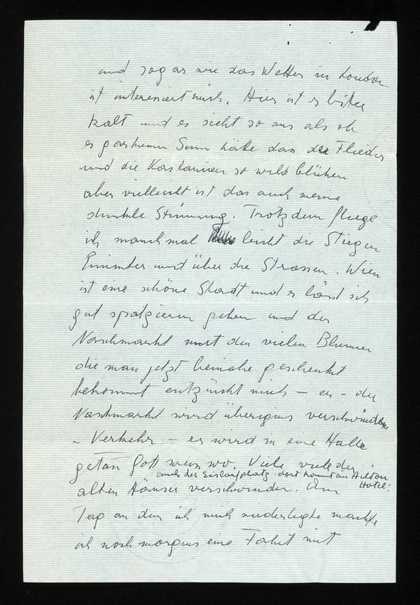 und sogar wie das Wetter in London
ist interessiert mich. Hier ist es bitter
kalt und es sieht so aus als ob
es gar keinen Sinn hätte das die Flieder
und die Kastanien so wild blühen
aber vielleicht ist das auch meine
dunkle Stimmung. Trotzdem fliege
ich manchmal leicht die Stiegen
hinunter und über die Strassen. Wien
ist eine schöne Stadt und es lässt sich
gut spatzieren gehen und der
Naschmarkt mit den vielen Blumen
die man jetzt beinahe geschenkt
bekommt entzückt mich – er – der
Naschmarkt wird übrigens verschwinden
– Verkehr – er wird in eine Halle
getan Gott weiss wo. Viele viele der
auch der Eislaufplatz dort kommt ein Hilton Hotel.
alten Häuser verschwinden. Am
Tag an dem ich mich niederlegte machte
ich noch morgens eine Fahrt mit